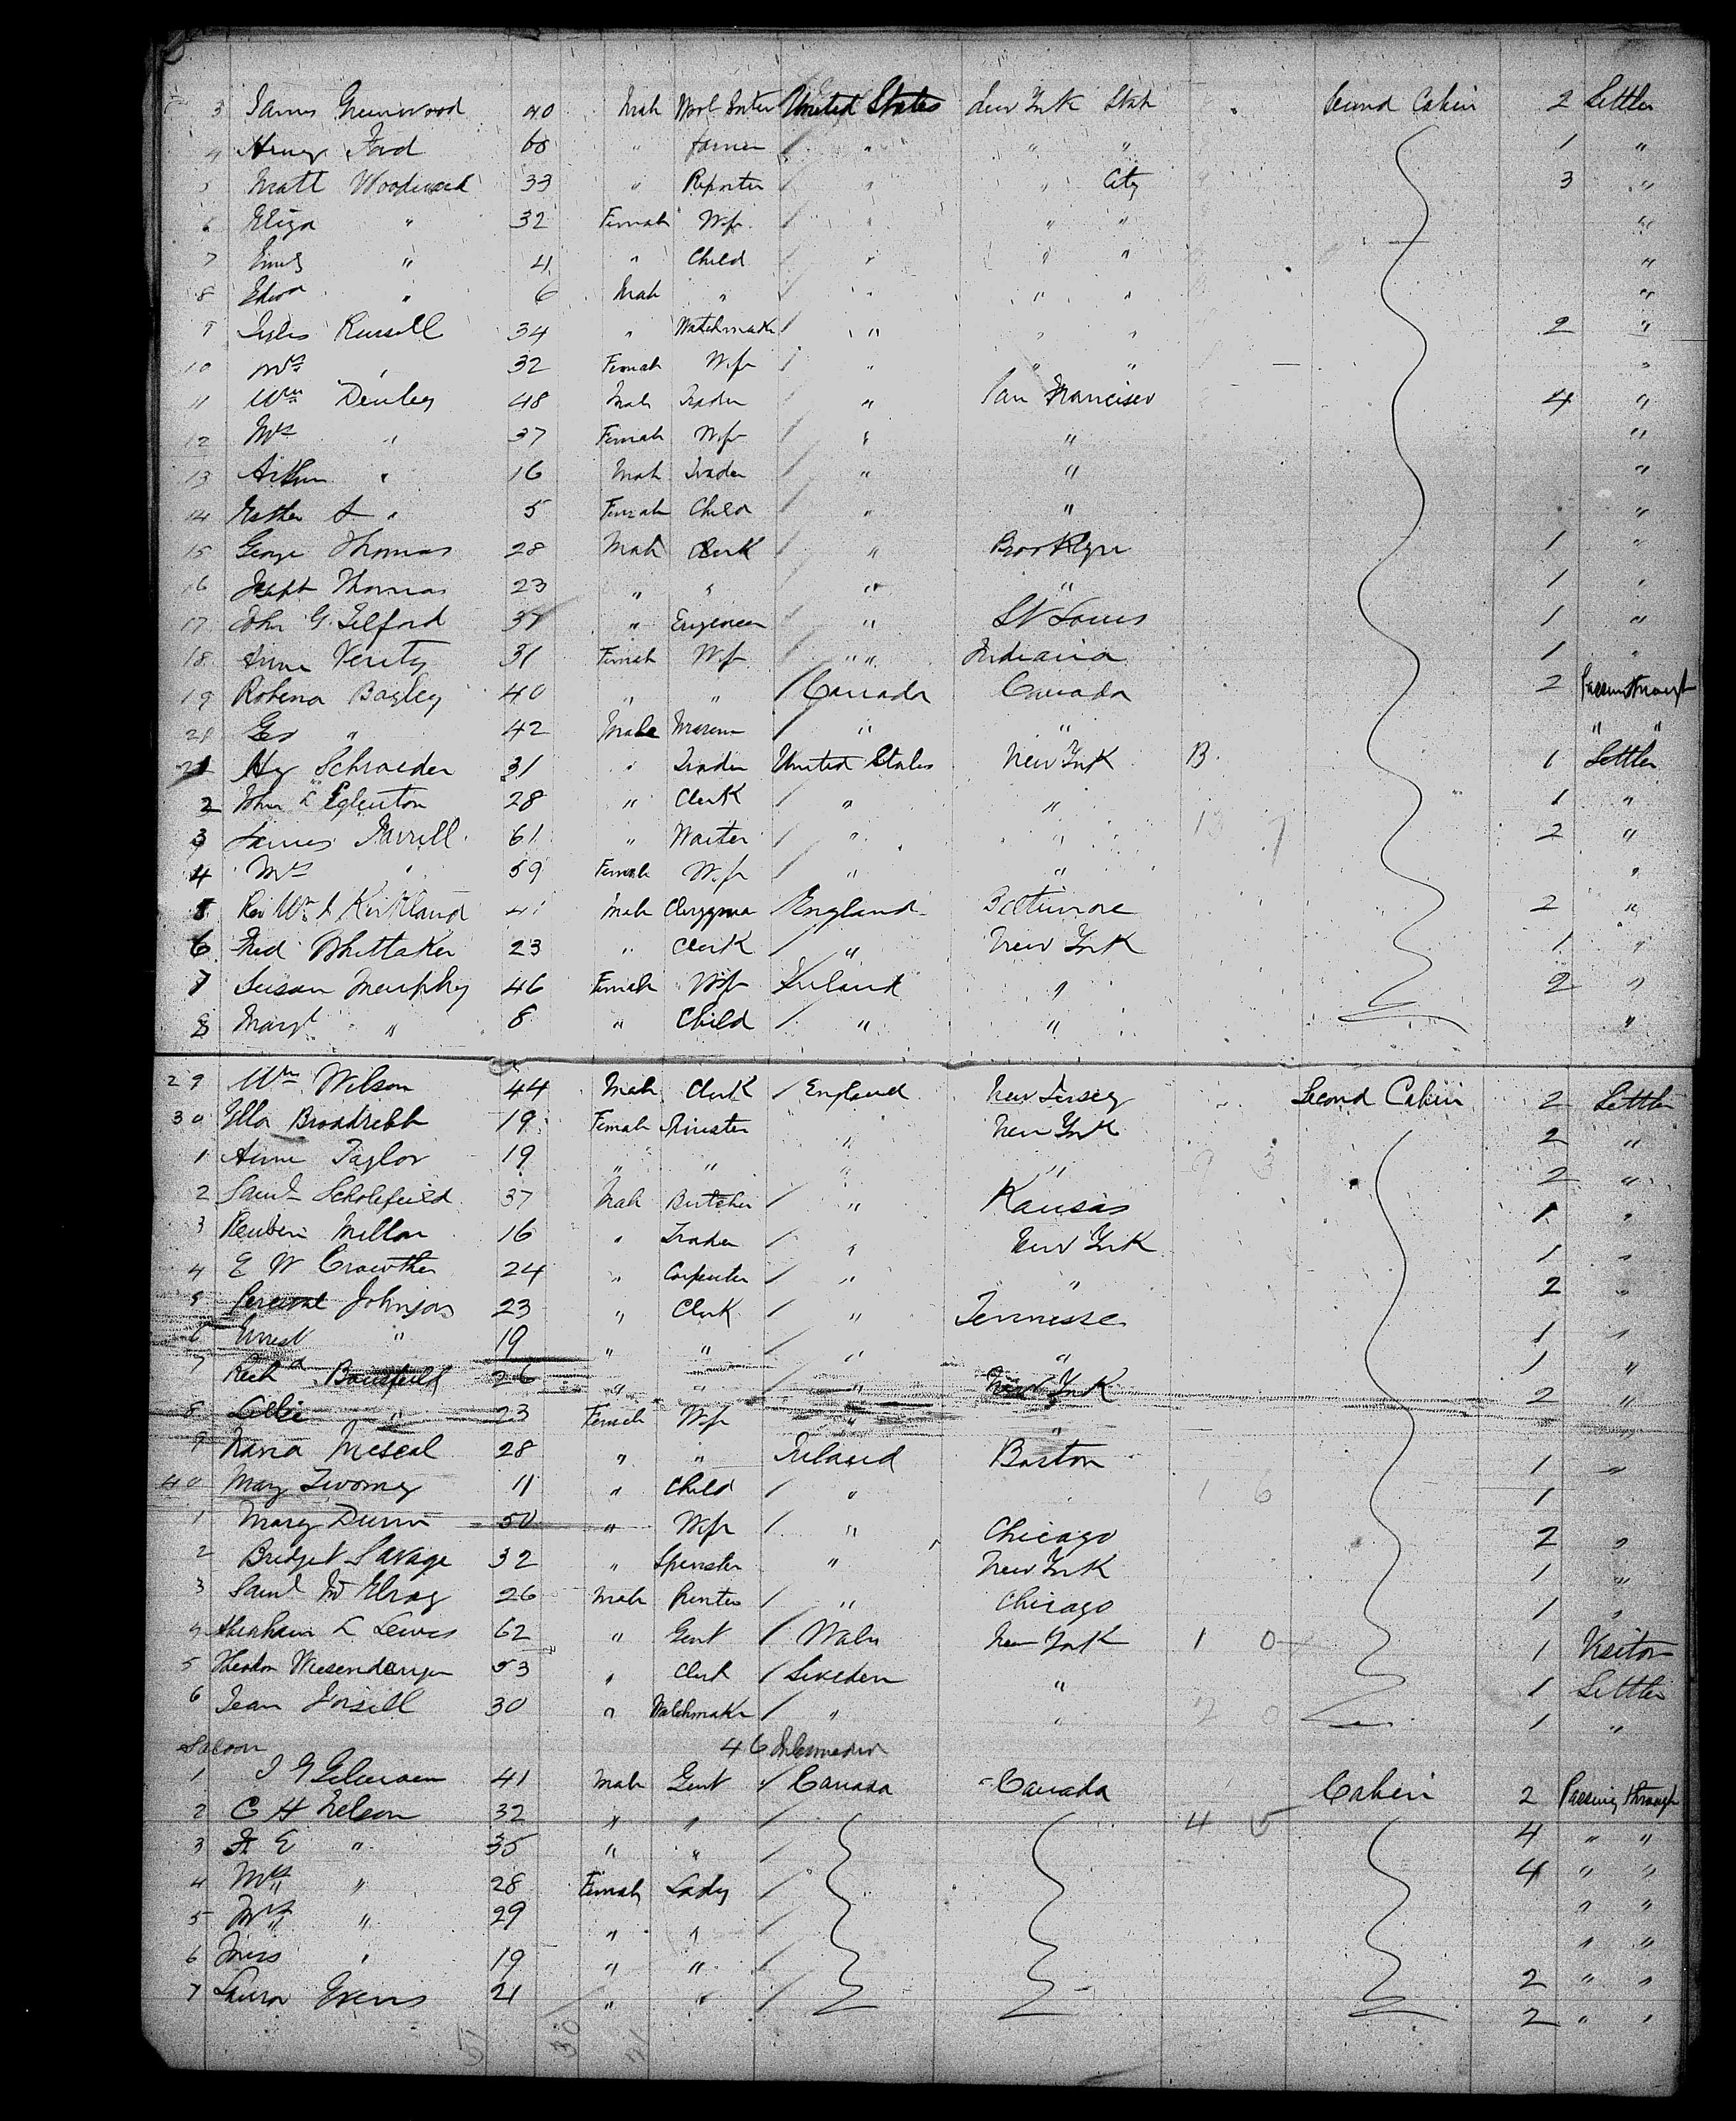 3 James Greenwood 40 Male Wool Sorter United States New York State Second Cabin 2 Settler
4 Henry Ford 60 " farmer " " " 1 "
5 Matt Woodward 33 " Reporter " " City 3 "
6 Eliza " 32 Female Wife " " " "
7 " 4 " Child " " " "
8 Edwd " 6 Male " " " " "
9 Russell 34 " Watchmaker " " " 2 "
10 Mrs " 32 Female Wife " " " "
11 Wm Denley 48 Male Trader " San Francisco 4 "
12 Mrs " 37 Female Wife " " "
13 Arthur " 16 Male Trader " " "
14 Esther A " 5 Female Child " " "
15 George Thomas 28 Male Clerk " Brooklyn 1 "
16 Joseph Thomas 23 " " " " 1 "
17 John G Telford 37 " Engineer " St Louis 1 "
18 Anne Verity 31 Female Wife " " Indiana 1 "
19 Robena Bagley 40 " " Canada Canada 2 Passing through
20 Geo " 42 Male Mason " " " "
21 Hy Schroeder 31 " Trader United States New York 13 1 Settler
2 John L Egleston 28 " Clerk " " 1 "
3 James Farrell 61 " Waiter " " 2 "
4 Mrs " 59 Female Wife " " "
5 Rev Wm J Kirkland 41 Male Clergyman England Baltimore 2 "
6 Fred Whittaker 23 " Clerk " New York 1 "
7 Susan Murphy 46 Female Wife Ireland " 2 "
8 Margt " 8 " Child " " "
29 Wm Wilson 44 Male Clerk England New Jersey Second Cabin 2 Settler
30 Ella Broadrebb 19 Female Spinster " New York 2 "
1 Annie Taylor 19 " " " " 2 "
2 Saml Scholefield 37 Male Butcher " Kansas 1 "
3 Reuben Milton 16 " Trader " New York 1 "
4 E W Crowther 24 " Carpenter " " 2 "
5 Percival Johnson 23 " Clerk " Tennesse 1 "
6 Ernest " 19 " " " " 1 "
7 Richd Bousfield 26 " " " New York 2 "
8 Lillie " 23 Female Wife " " "
9 28 " " Ireland Boston 1 "
40 Mary Twomey 11 " Child " 1 6 1
1 Mary Dunn 50 " Wife " Chicago 2 "
2 Bridget Savage 32 " Spinster " New York 1 "
3 Saml McElroy 26 Male Printer " Chicago 1 "
4 Abraham L Lewis 62 " Gent Wales New York 1 0 1 Visitor
5 Wiesendanger 53 " Clerk Sweden " 1 Settler
6 Jean 30 " Watchmaker " " 2 0 1 "
Saloon 46 Intermediate
1 41 Male Gent Canada Canada Cabin 2 Passing through
2 C H Nelson 32 " " 4 5 4 " "
3 " 35 " " 4 " "
4 Mrs " 28 Female Lady " "
5 Mrs " 29 " " " "
6 Miss " 19 " " 2 " "
7 Laura 21 " " 2 " "
51 30 21